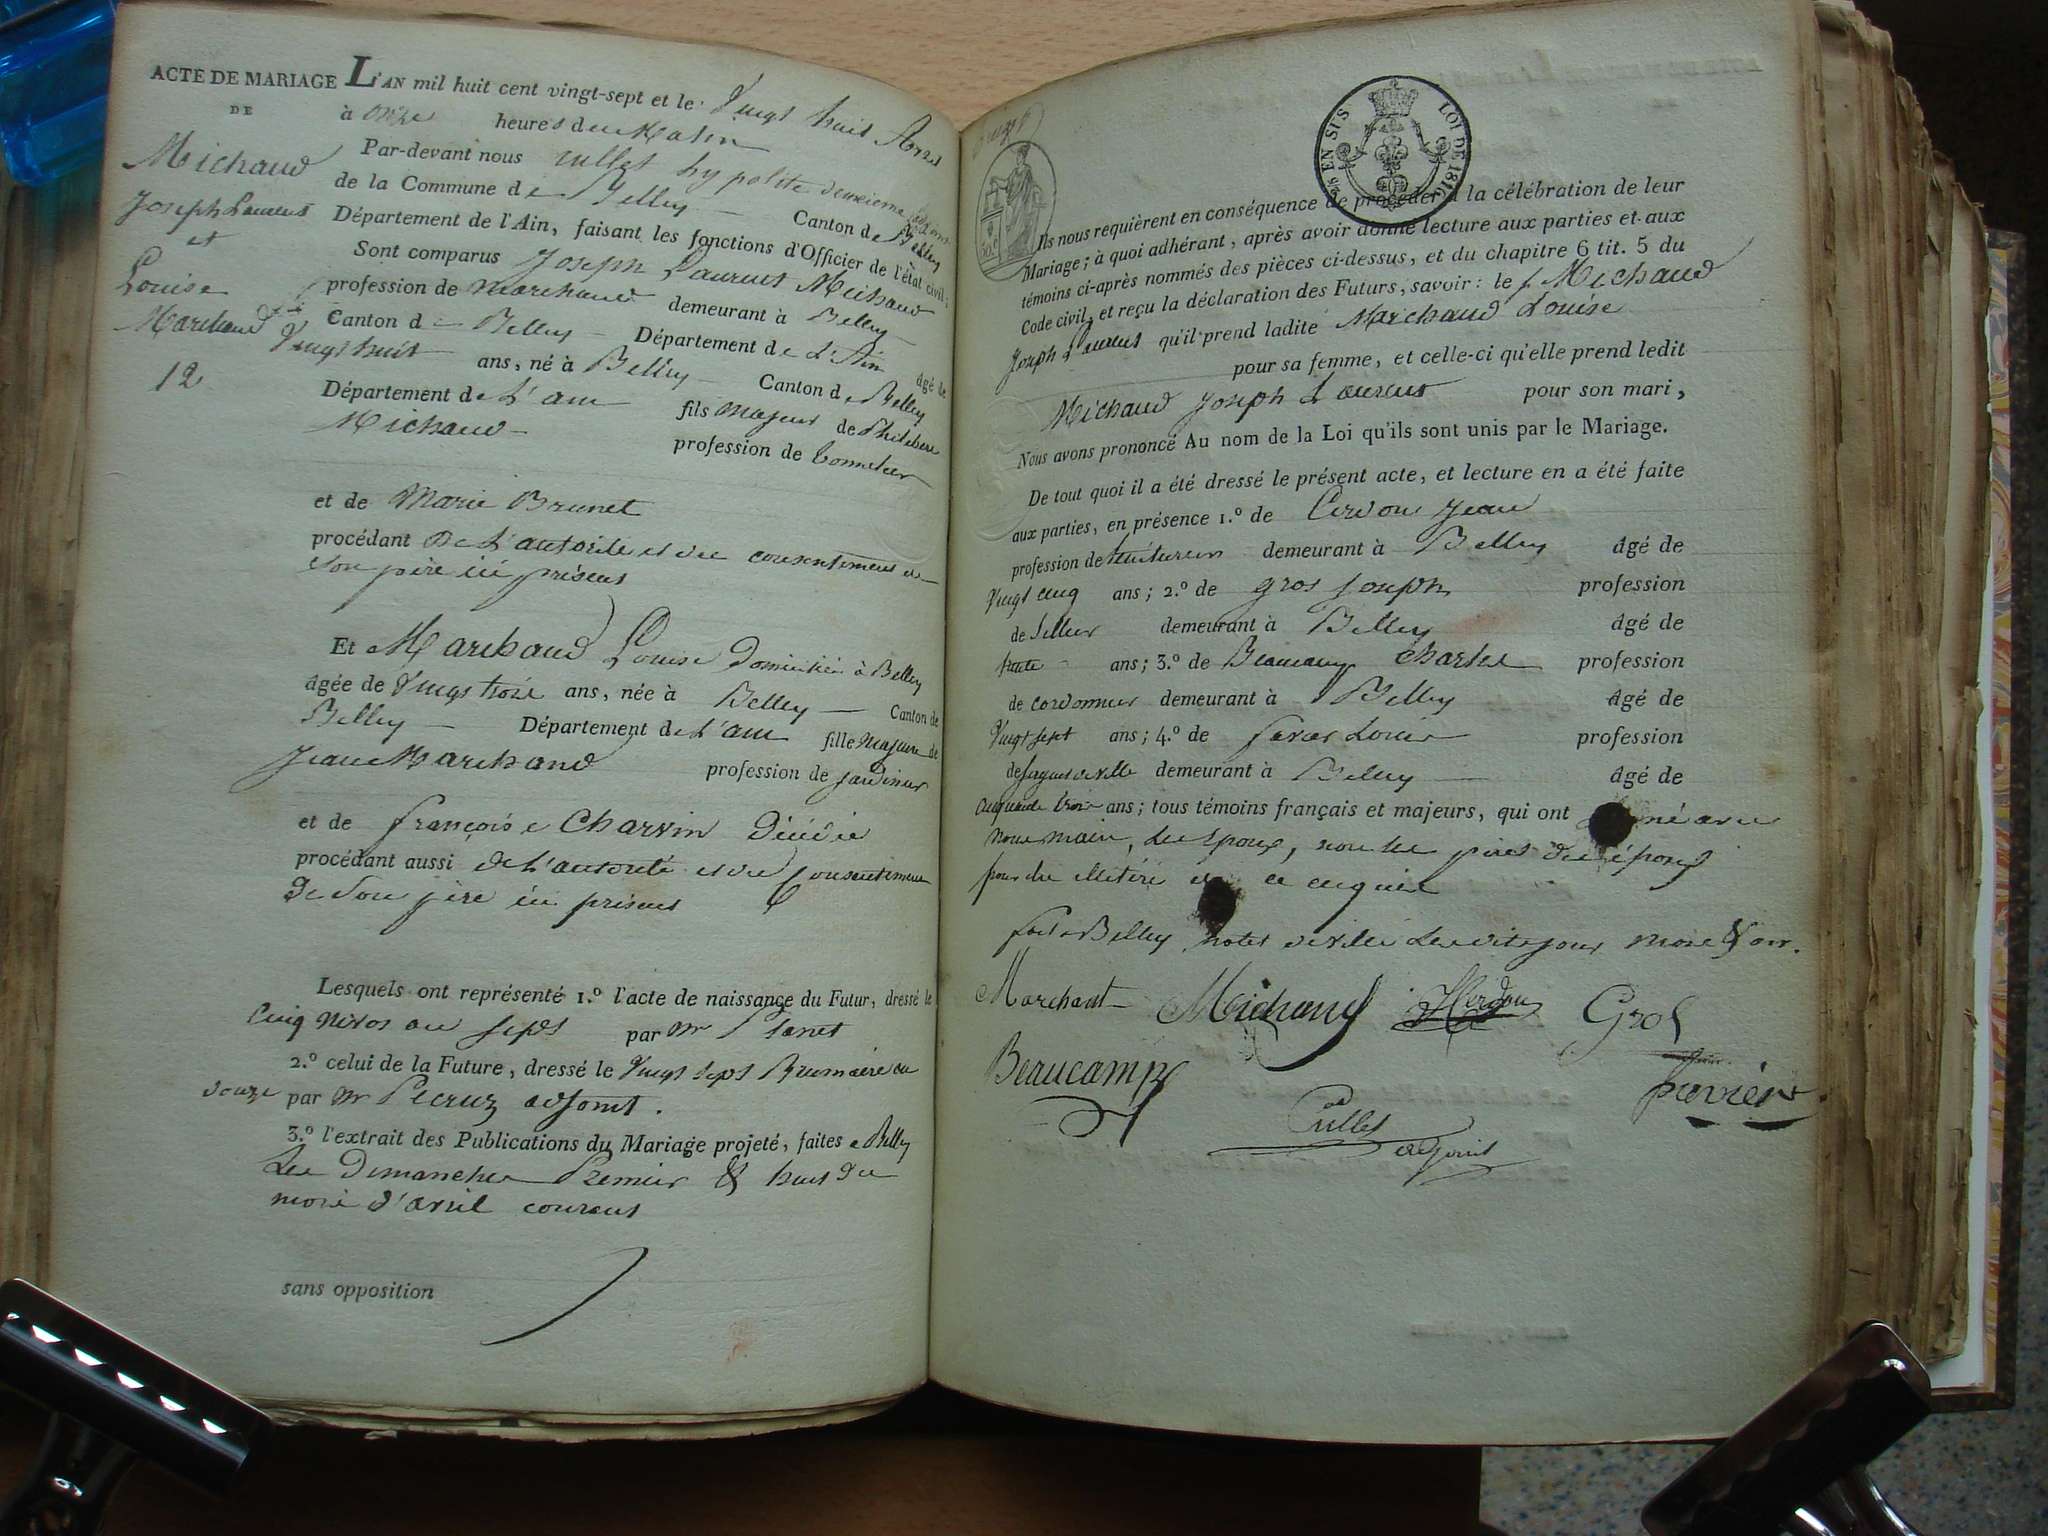 ACTE DE MARIAGE
DE
Michaud
Joseph Laurent
et
Louise
Marchand
12
L'AN mil huit cent vingt-sept et le vingt huit Avril
à onze heures du Matin
Par-devant nous Cullet hy polite deuxieme adjoint
de la Commune de Belley Canton de Belley
Département de l'Ain, faisant les fonctions d'Officier de l'état civil;
Sont comparus Joseph Laurent Michaud
profession de marchand demeurant à Belley
Canton d Belley Département de L'Ain âgé de
Vingt huit ans, né à Belley Canton de Belley
Département de L'ain fils majeur de Philibert
Michaud profession de bonnetier
et de Marie Brunet
procédant de L'autorité et du consentement de
son père ici présent
Et Marchand Louise Domiciliée à Belley
âgée de Vingt trois ans, née à Belley Canton de
Belley Département de L'ain fille majeure de
Jean Marchand profession de jardinier
et de françoise Charvin Décédée
procédant aussi de L'autorité et du Consentement
de Son père ici présent
Lesquels ont représenté 1.º l'acte de naissance du Futur, dressé le
Cinq nivos an sept par mr
2.º celui de la Future, dressé le Vingt sept Brumaire an
douze par mr Pecruz adjoint.
3.º l'extrait des Publications du Mariage projeté, faites a Belley
Les Dimanches Premier & huit du
mois d'avril courant
sans opposition
25 EN SUS LOI DE 1816
Ils nous requièrent en conséquence de procéder à la célébration de leur
Mariage; à quoi adhérant, après avoir donné lecture aux parties et aux
témoins ci-après nommés des pièces ci-dessus, et du chapitre 6 tit. 5 du
Code civil, et reçu la déclaration des Futurs, savoir: le Michaud
Joseph Laurent qu'il prend ladite Marchand Louise
pour sa femme, et celle-ci qu'elle prend ledit
Michaud Joseph Laurent pour son mari,
Nous avons prononcé Au nom de la Loi qu'ils sont unis par le Mariage.
De tout quoi il a été dressé le présent acte, et lecture en a été faite
aux parties, en présence 1.º de Cerdon Jean
profession de teinturier demeurant à Belley âgé de
Vingt cinq ans; 2.º de gros Joseph profession
de Sellier demeurant à Belley âgé de
trente ans; 3.º de Beaucamp Charles profession
de cordonnier demeurant à Belley âgé de
Vingt sept ans; 4.º de Louis profession
de sergent de ville demeurant à Belley âgé de
Cinquante trois ans; tous témoins français et majeurs, qui ont avec
nous main, les époux, non les pères des époux
pour être illitéré de ce enquis
fait a Belley hotel de ville Les dits jour mois & an.
Marchant Michaud Herdon Gros
Beaucamp Cullet adjoint